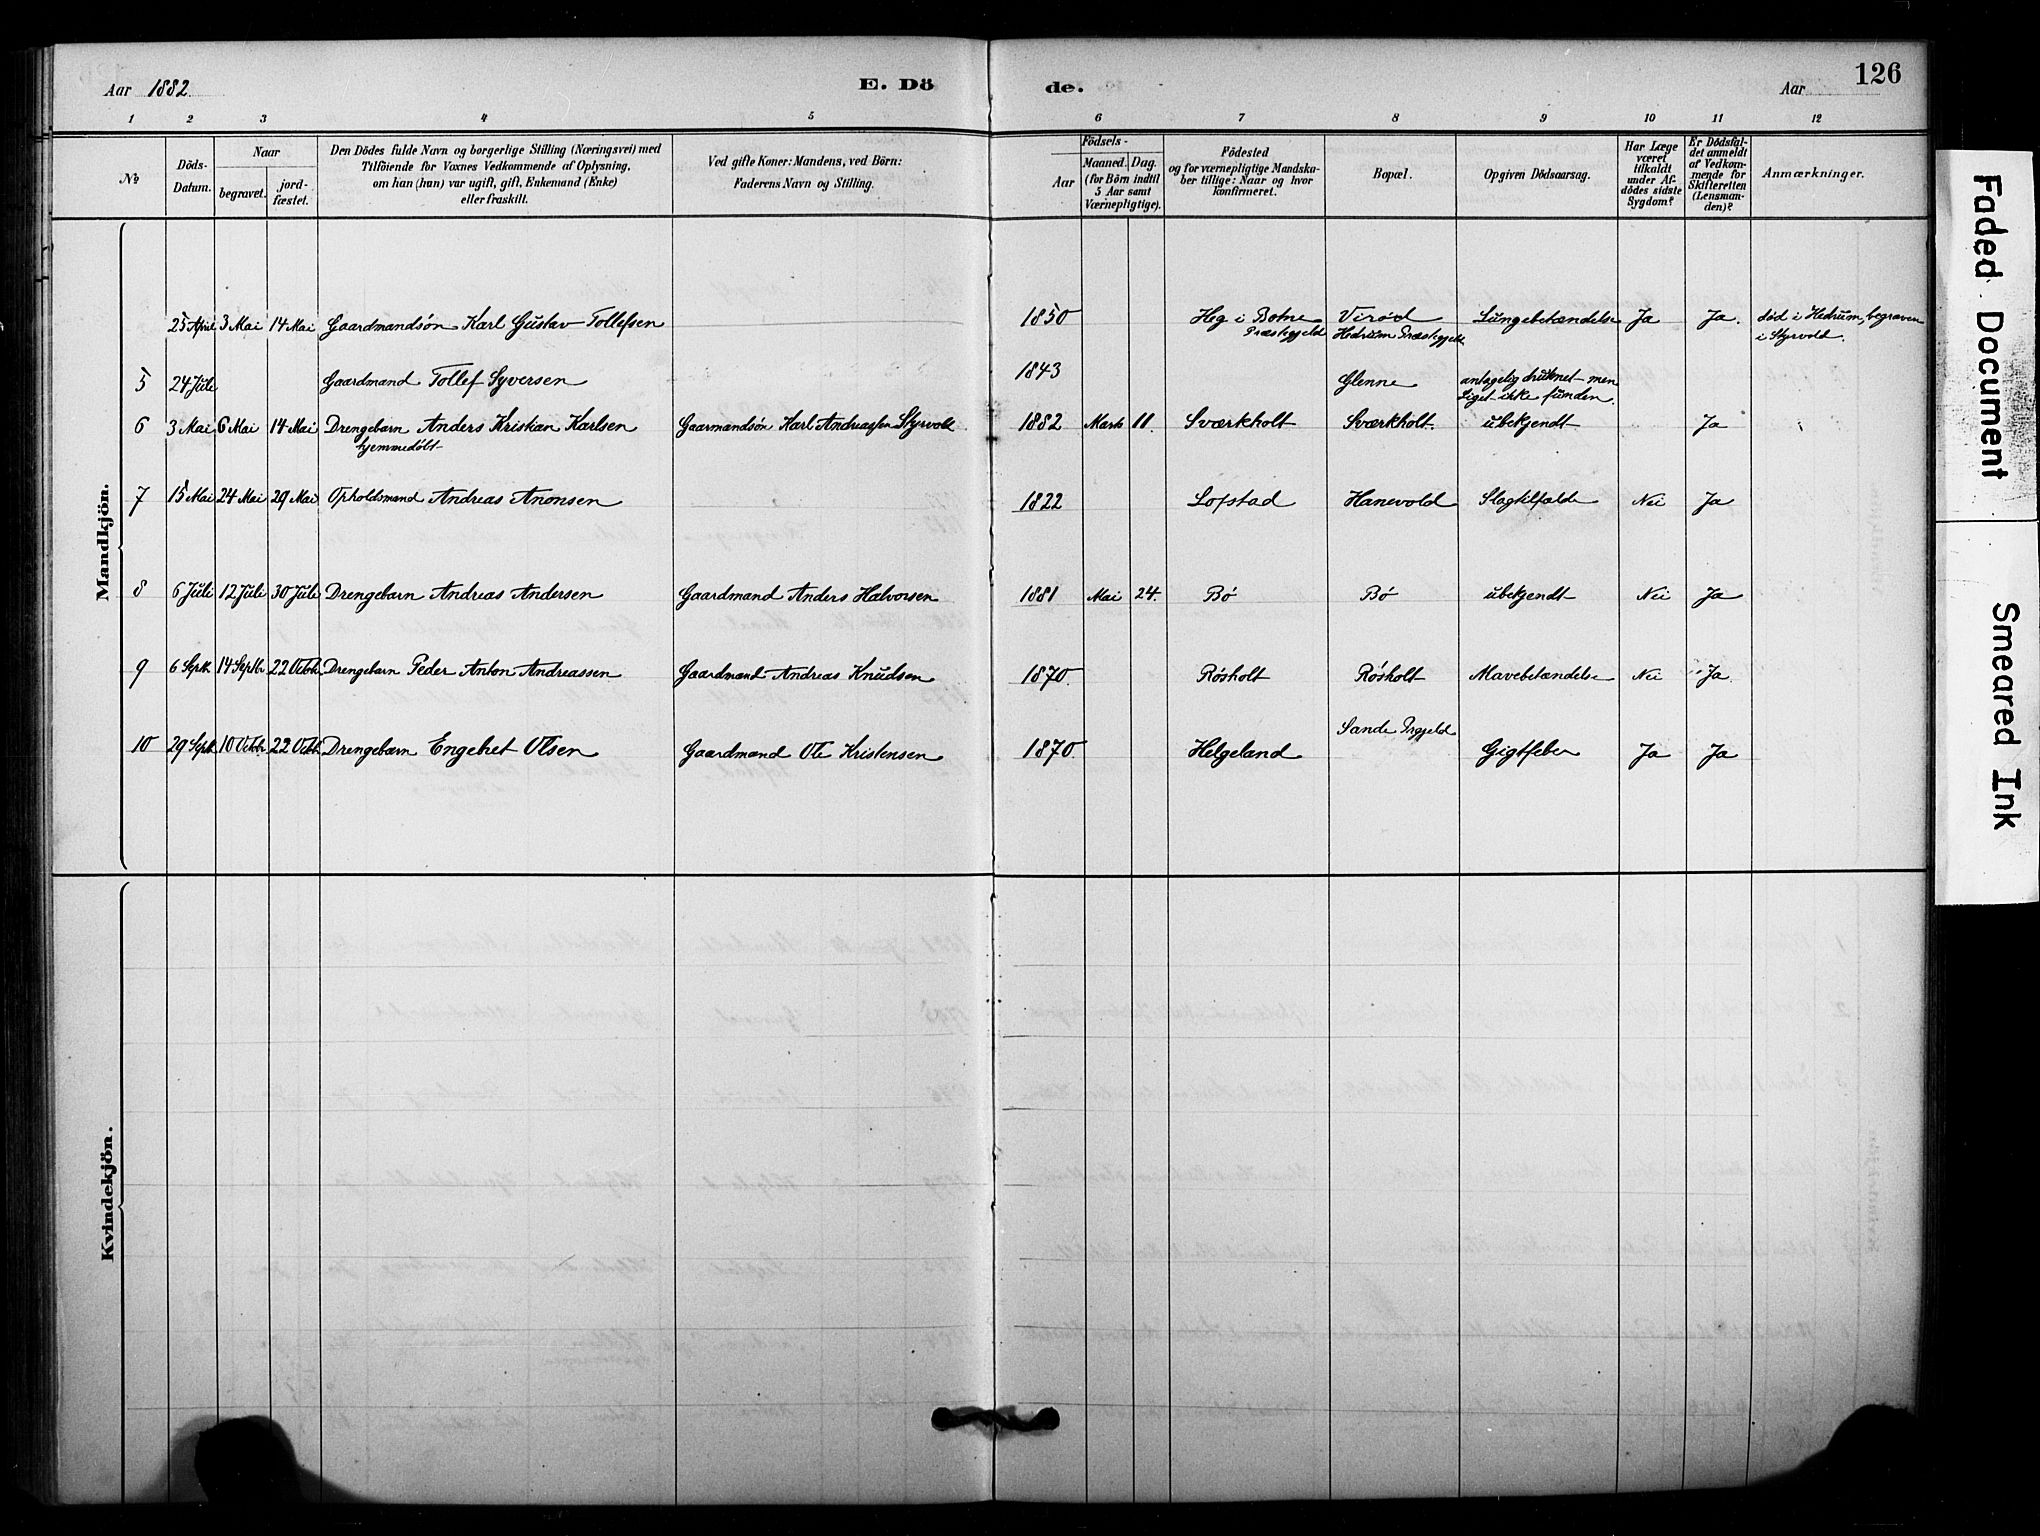 Aar 1882. E. Dö de. Aar 126
1 2 3 4 5 6 7 8 9 10 11 12
No
Döds-Datum.
Naar
begravet. jord-fæstet.
Den Dödes fulde Navn og borgerlige Stilling (Næringsvei) med
Tilföiende for Voxnes Vedkommende af Oplysning,
om han (hun) var ugift, gift, Enkemand (Enke)
eller fraskilt.
Ved gifte Koner: Mandens, ved Börn:
Faderens Navn og Stilling.
Födsels-
Aar
Maaned. Dag.
(for Börn indtil
5 Aar samt
Værnepligtige).
Födested
og for værnepligtige Mandska-
ber tillige: Naar og hvor
konfirmeret.
Bopæl.
Opgiven Dödsaarsag.
Har Læge
været
tilkaldt
under Af-
dödes sidste
Sygdom?
Er Dödsfal-
det anmeldt
af Vedkom-
mende for
Skifteretten
(Lensman-
den)?
Anmærkninger.
Mandkjön.
25 April 3 Mai 14 Mai Gaardmandsøn Karl Gustav Tollefsen 1850 Heg i Botne Virød Lungebetændelse Ja Ja. død i Hedrum, begraven
Præstegjeld Hedrum Præstegjeld i Styrvold.
5 24 Juli Gaardmand Tollef Syversen 1843 Glenne antagelig druknet men
Liget ikke funden.
6 3 Mai 6 Mai 14 Mai Drengebarn Anders Kristian Karlsen Gaarmandsøn Karl Andreassen Styrvold 1882 Marts 11. Sværkholt Sværkholt. ubekjendt Ja
hjemmedøbt
7 15 Mai 24 Mai 29 Mai Opholdsmand Andreas Aronsen 1822 Lofstad Hanevold Slagtilfælde Nei Ja
8 6 Juli 12 Juli 30 Juli Drengebarn Andreas Andersen Gaardmand Anders Halvorsen 1881 Mai 24. Bø Bø ubekjendt Nei Ja
9 6 Septb 14 Septb 22 Octob Drengebarn Peder Anton Andreassen Gaardmand Andreas Knudsen 1870. Røsholt Røsholt Mavebetændelse Nei Ja.
Sande Prgjeld
10 29 Septb 10 Octob 22 Octob Drengebarn Engebret Olsen Gaardmand Ole Kristensen 1870. Helgeland Gigtfeber Ja Ja
Kvindekjön.
Faded Document
Smeared Ink